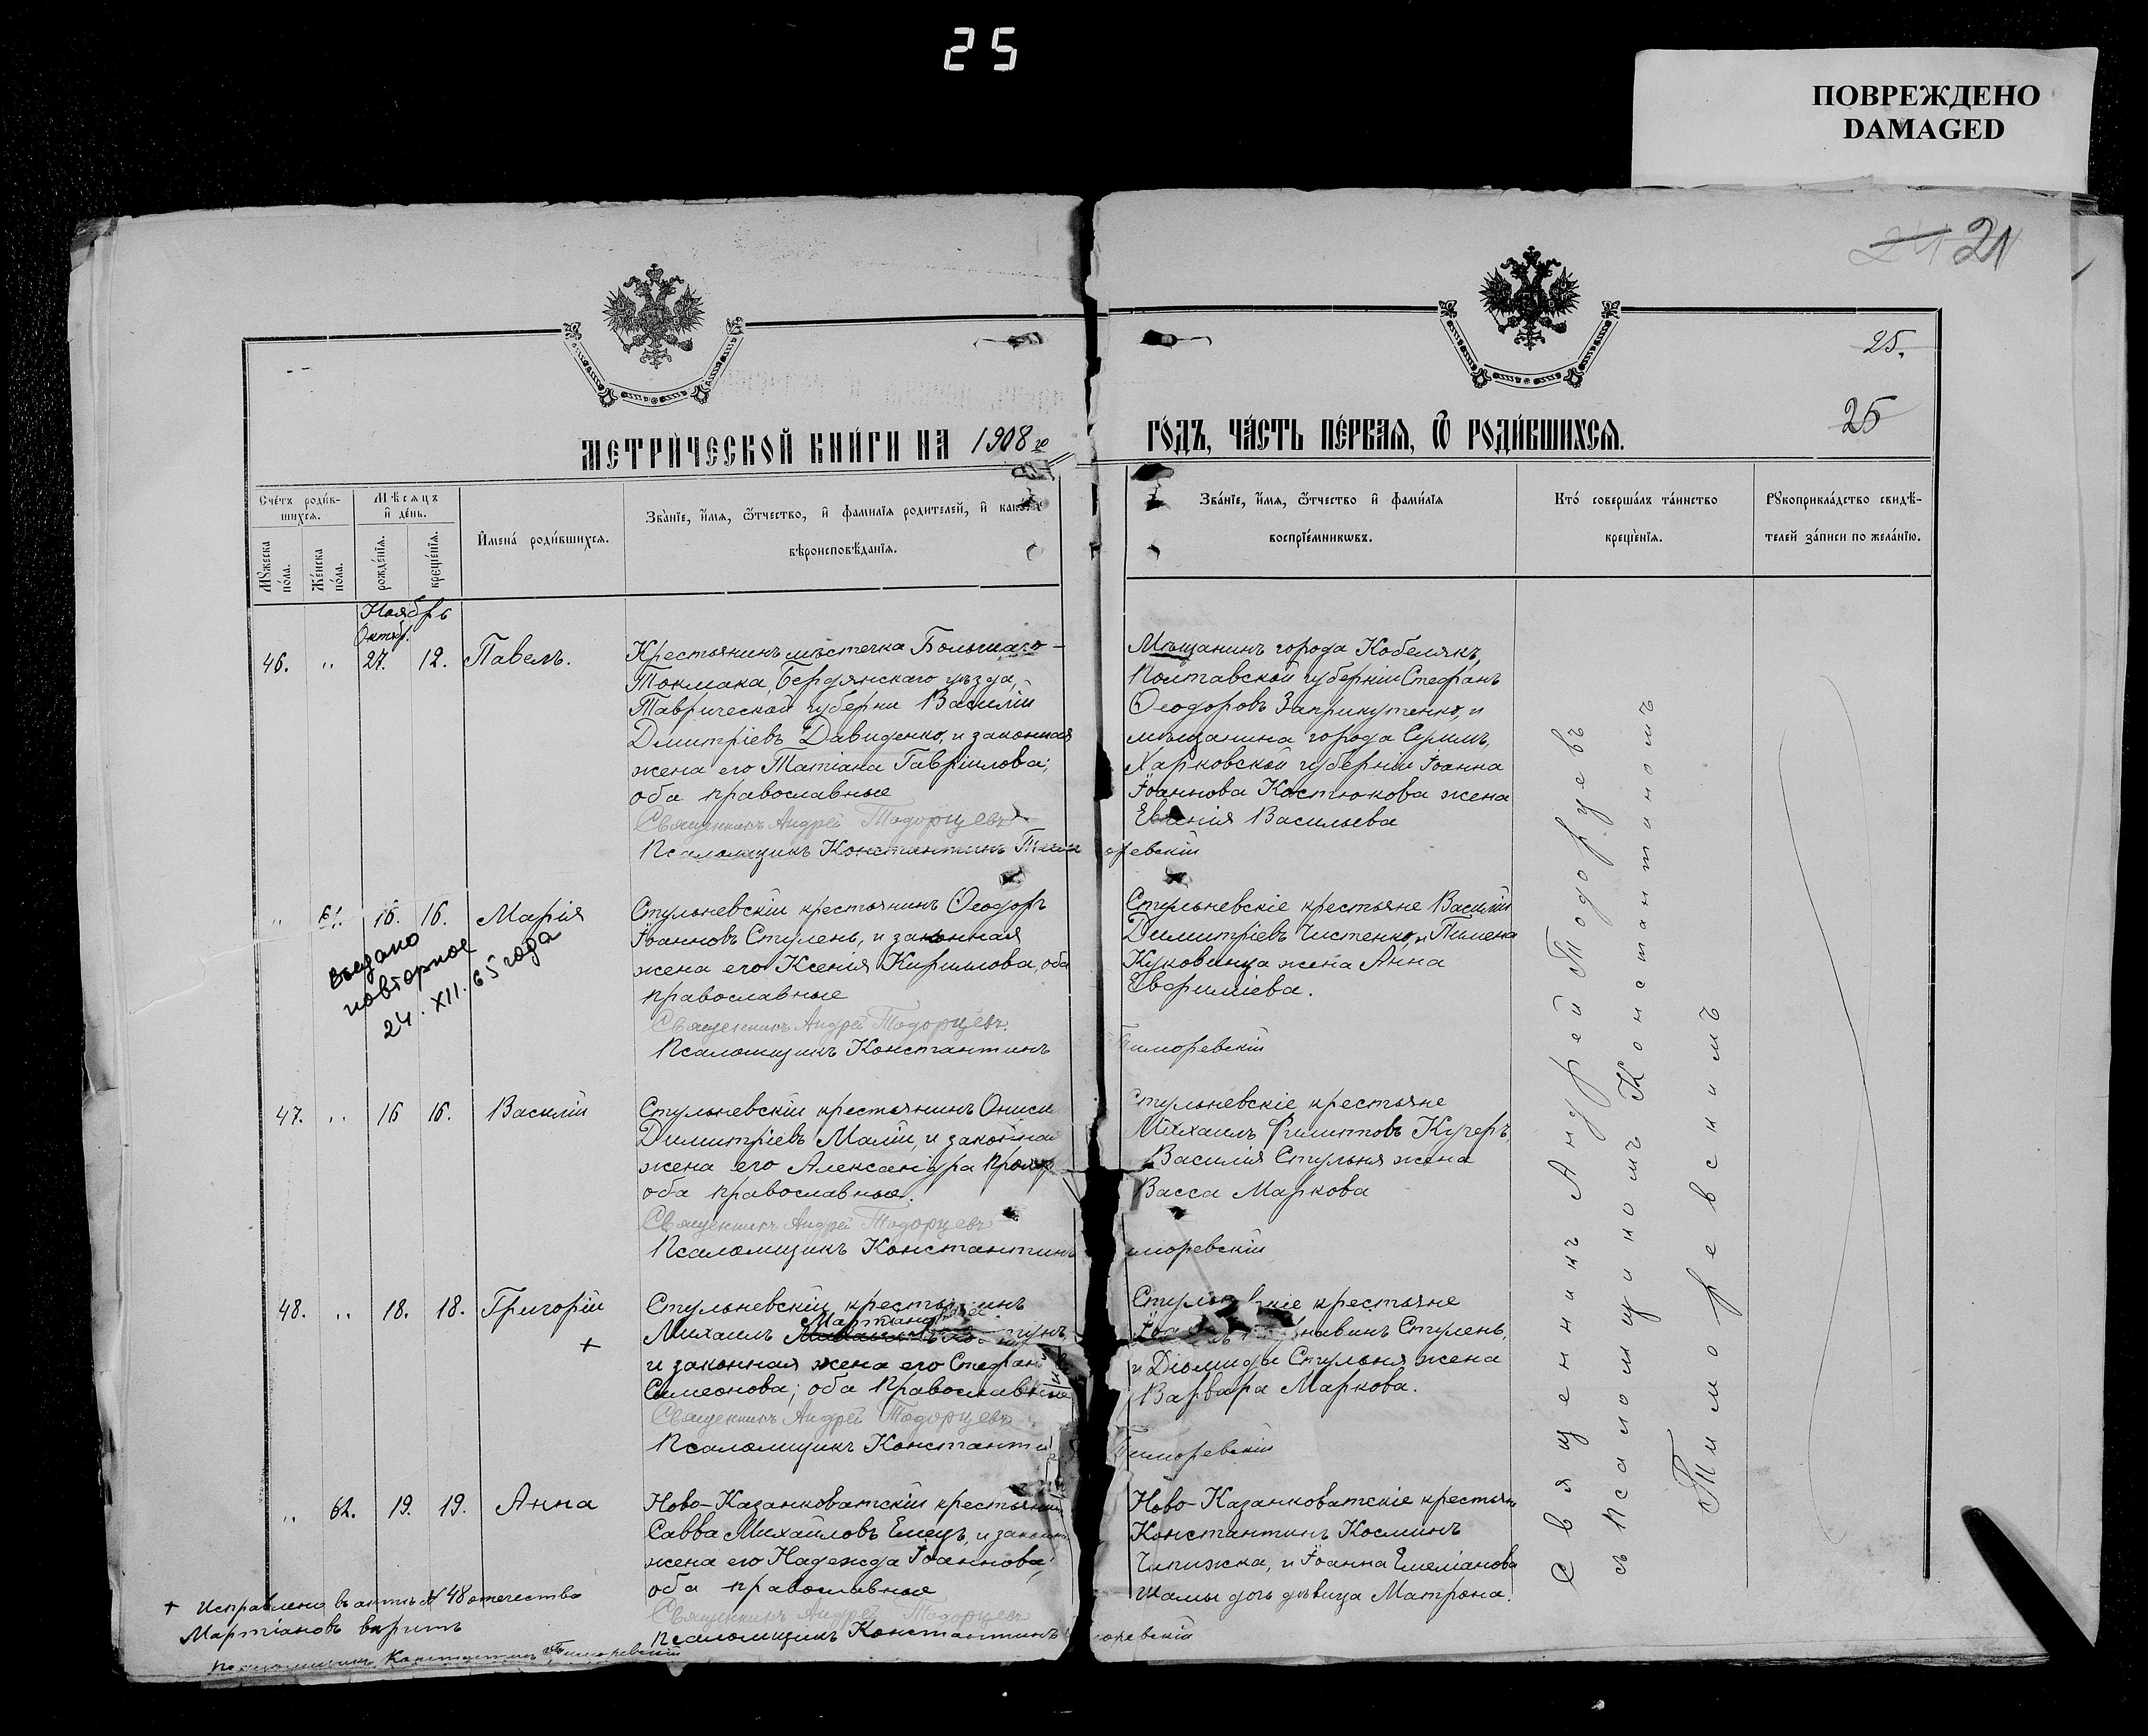 25
ПОВРЕЖДЕНО
DAMAGED
21
25.
25
МЕТРИ́ЧЕСКОЙ КНИ́ГИ НА 1908 го
ГО́ДЪ, ЧА́СТЬ ПЕ́РВАЯ, Ѿ РОДИ́ВШИХСЯ.
Сче́тъ роди́в-
шихся.
Мѣсяцъ
и де́нь.
Му́жеска по́ла.
Же́нска по́ла.
рожде́нїя.
креще́нїя.
Имена́ роди́вшихся.
Зва́нїе, и́мя, ѻ́тчество, и фами́лїя родителей, и како́гѡ
вѣроисповѣ́данїя.
Зва́нїе, и́мя, ѻ́тчество и фами́лїя
воспрїе́мникѡвъ.
Кто́ соверша́лъ та́инство
креще́нїя.
Рукоприкла́дство свидѣ́-
телей за́писи по жела́нїю.
Ноябрь
Октяб.
46. „ 27. 12. Павелъ.
Крестьянинъ мѣстечка Большаго-
Токмака, Бердянскаго уѣзда,
Таврической губерни Василій
Димитріевъ Давиденко, и законная
жена его Татіана Гавріилова;
оба православные
Священникъ Андрей Тодорцевъ
Псаломщикъ Константинъ Тиморевскій
Мѣщанинъ города Кобелякъ,
Полтавской губерніи Стефанъ
Ѳеодоровъ и
мѣщанина города Сумъ,
Харковской губерніи Іоанна
Іоаннова Костюкова жена
Васильева
„ 61. 16. 16. Марія
выдано
повторное
24. XII. 65 года
Стульневскій крестьянинъ Ѳеодоръ
Іоанновъ Стулень, и законная
жена его Ксенія Кириллова, оба
православные
Священникъ Андрей Тодорцевъ.
Псаломщикъ Константинъ Тиморевскій
Стульневскіе крестьяне Василій
Димитріевъ Чистенко, и Пимена
жена Анна
Евфиміева.
47. „ 16 16. Василій
Стульневскій крестьянинъ Ониси
Димитріевъ Малій, и законная
жена его Александра
оба православные.
Священникъ Андрей Тодорцевъ
Псаломщикъ Константинъ иморевскій
Стульневскіе крестьяне
Михаилъ Филиповъ Кучеръ,
Василія Стульня жена
Васса Маркова
48. „ 18. 18. Григорій
+
Стульневскій крестьянинъ
Мартіановъ
Михаилъ
и законная жена его Стефани
Симеонова; оба православные
Священникъ Андрей Тодорцевъ
Псаломщикъ Константи Тиморевскій
крестьяне
Стулень,
и Діомида Стульня жена
Варвара Маркова.
„ 62. 19. 19. Анна
Ново-Казанковатскій крестьянин
Савва Михайловъ Емецъ, и законн
жена его Надежда Іоаннова;
оба православные
Священникъ Андрей Тодорцевъ
Псаломщикъ Константинъ оревскій
Ново-Казанковатскіе крестьян
Константинъ Косминъ
Чепижка, и Іоанна Емеліанова
Шамы дочь дѣвица Матрона.
Священникъ Андрей Тодорцевъ
съ псаломщикомъ Константиномъ
Тиморевскимъ
+ Исправлено въ актѣ № 48 отчество
Мартіановъ вѣрить
Псаломщикъ Константинъ Тиморевскій